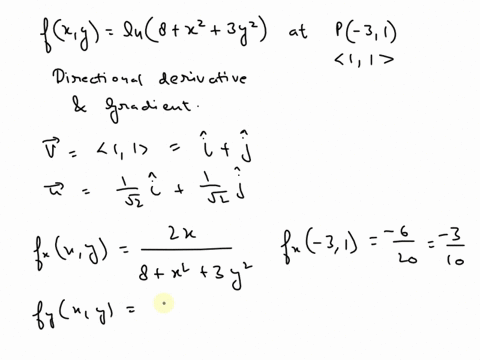 f(x,y) = ln(8+x²+3y²) at P(-3,1)
<1,1>
Directional derivative
& Gradient.
v⃗ = <1,1> = î + ĵ
u⃗ = 1/√2 î + 1/√2 ĵ
fx(x,y) = 2x / (8+x²+3y²) fx(-3,1) = -6/20 = -3/10
fy(x,y) =